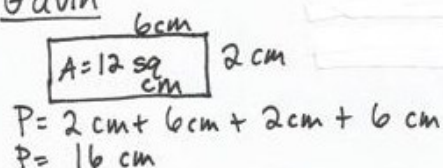 Gavin
6cm
A=12 sq cm
2 cm
P= 2 cm + 6cm + 2cm + 6 cm
P= 16 cm